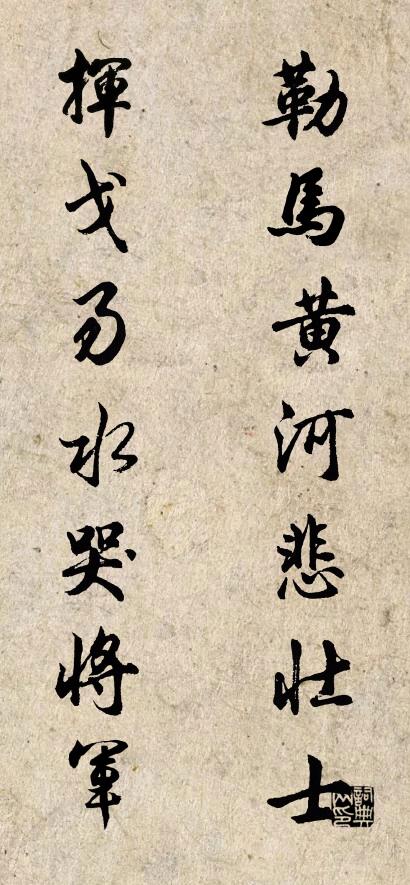 勒馬黄河悲壮士
揮戈易水哭將軍
詞典